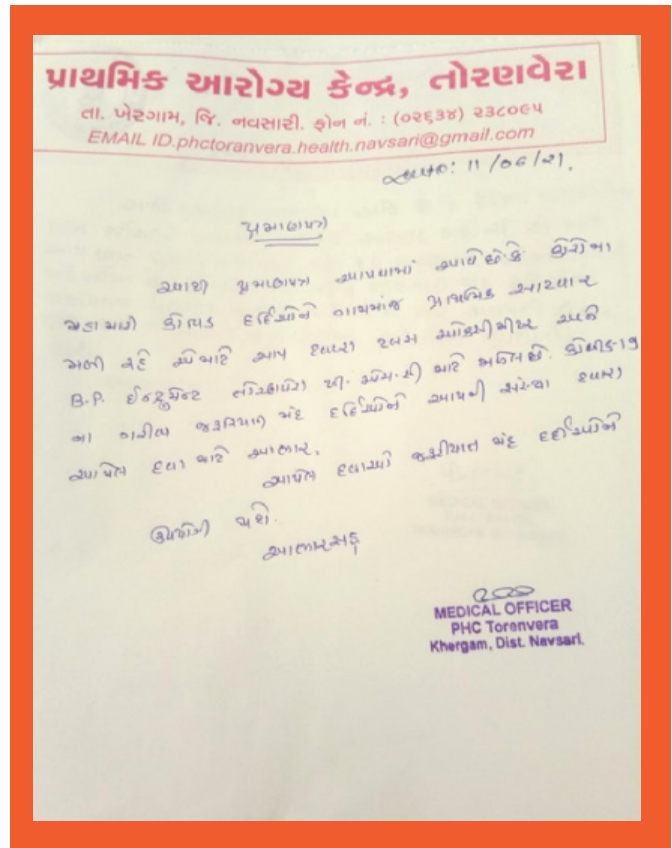 પ્રાથમિક આરોગ્ય કેન્દ્ર, તોરણવેરા
તા. ખેરગામ, જિ. નવસારી. ફોન નં. : (૦૨૬૩૪) ૨૩૮૦૯૫
EMAIL ID.phctoranvera.health.navsari@gmail.com
તારીખ: 11/06/21.
પ્રમાણપત્ર
આથી પ્રમાણપત્ર આપવામાં આવે છે કે કોરોના
મહામારી કોવિડ દર્દીઓને ગામમાંજ પ્રાથમિક સારવાર
મળી રહે એ માટે આપ દ્વારા પલ્સ ઓક્સીમીટર અને
B.P. ઈન્સ્ટ્રુમેન્ટ તોરણવેરા પી.એચ.સી માટે મળેલ છે. કોવીડ-19
ના ગરીબ જરૂરિયાત મંદ દર્દીઓને આપની સંસ્થા દ્વારા
આપેલ દવા માટે આભાર.
આપેલ દવાઓ જરૂરીયાત મંદ દર્દીઓને
ઉપયોગી થશે.
આભારસહ
MEDICAL OFFICER
PHC Toranvera
Khergam, Dist. Navsari.